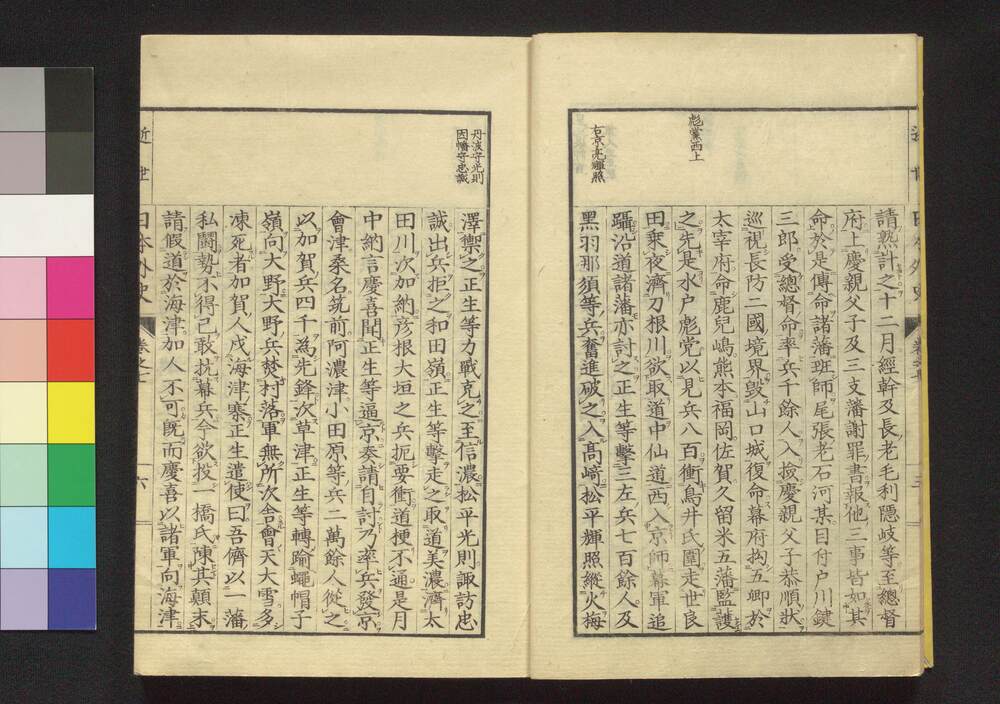 請熟計之十二月經幹及長老毛利隱岐等至總督
府上慶親父子及三支藩謝罪書報他三事皆如其
命於是傳命諸藩班師尾張老石河某目付戸川鍵
三郎受總督命率兵千餘人入撿慶親父子恭順狀
巡視長防二國境界毀山口城復命幕府拘五卿於
太宰府命鹿兒嶋熊本福岡佐賀久留米五藩監護
之先是水户彪党以見兵八百衝鳥井氏圍走世良
田乘夜濟刀根川欲取道中仙道西入京師幕軍追
躡沿道諸藩亦討之正生等擊三左兵七百餘人及
黑羽那須等兵奮進破之入髙﨑松平輝照縱火梅
彪黨西上
右京亮輝照
澤禦之正生等力戰克之至信濃松平光則諏訪忠
誠出兵拒之和田嶺正生等擊走之取道美濃濟太
田川次加納彦根大垣之兵扼要衝道梗不通是月
中納言慶喜聞正生等逼京奏請自討乃率兵發京
會津桑名筑前阿濃津小田原等兵二萬餘人從之
以加賀兵四千為先鋒次草津正生等轉踰蠅帽子
嶺向大野大野兵焚村落軍無所次舍會天大雪多
凍死者加賀人戍海津寨正生遣使曰吾儕以一藩
私鬪勢不得已敢抗幕兵今欲投一橋氏陳其顛末
請假道於海津加人不可既而慶喜以諸軍向海津
丹波守光則
因幡守忠誠
近世
日本外史
六